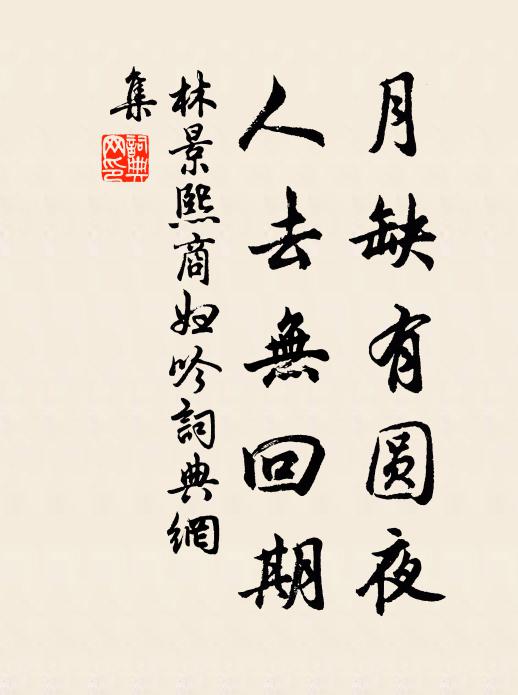 月缺有圆夜
人去無回期
林景熙商妇吟詞典網
集
詞典
网印